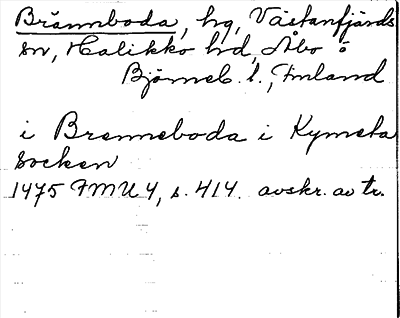 Brännboda, hg, Västanfjärds
sn, Halikko hd, Åbo o
Björneb. l., Finland
i Brenneboda i Kymeta
socken
1475 FMU 4, s. 414. avskr. av tr.